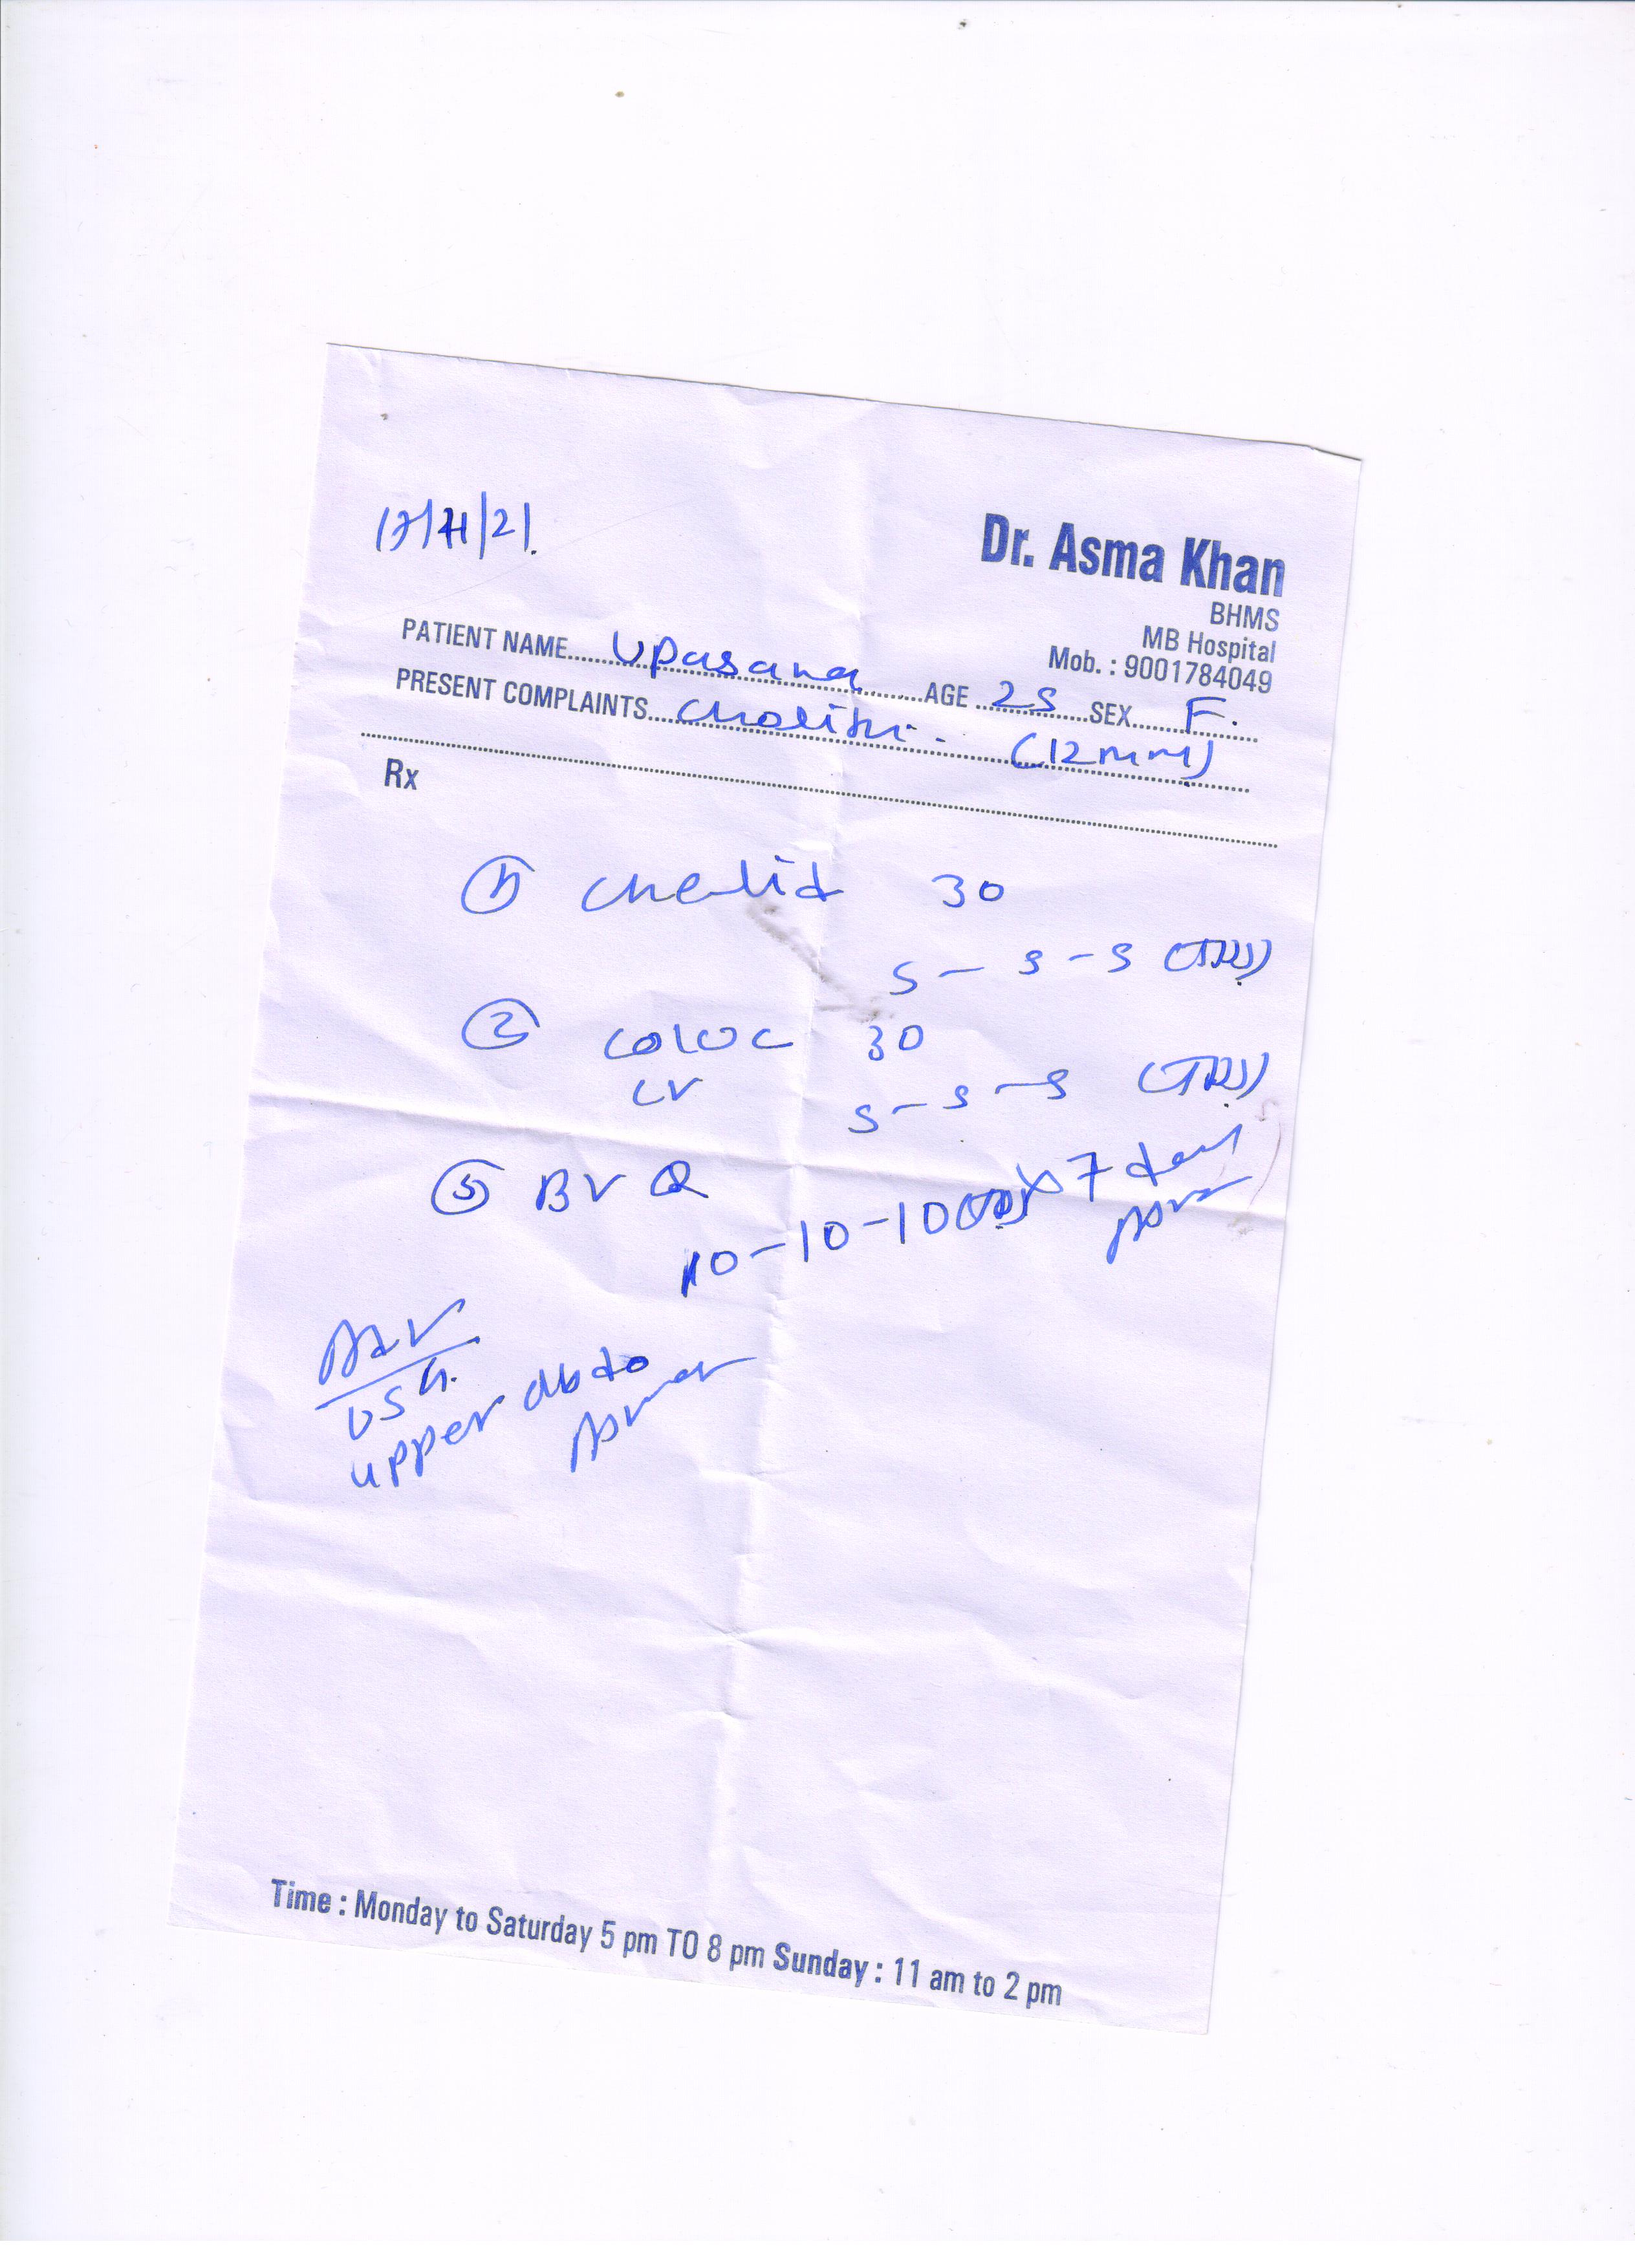 Dr. Asma Khan
BHMS
MB Hospital
Mob. : 9001784049
PATIENT NAME Upasana AGE 25 SEX F.
PRESENT COMPLAINTS (12mm)
Rx
① Chelid 30
5 - 5 - 5 (TDS)
② Coloc 30
5 - 5 - 5 (TDS)
③ BV Q
10-10-10 (TDS) x 7 days
Adv
USG.
upper abdo
Time : Monday to Saturday 5 pm TO 8 pm Sunday : 11 am to 2 pm